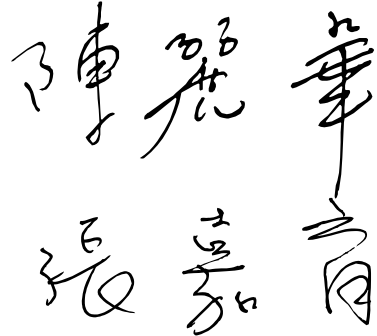 陳麗華
張嘉育